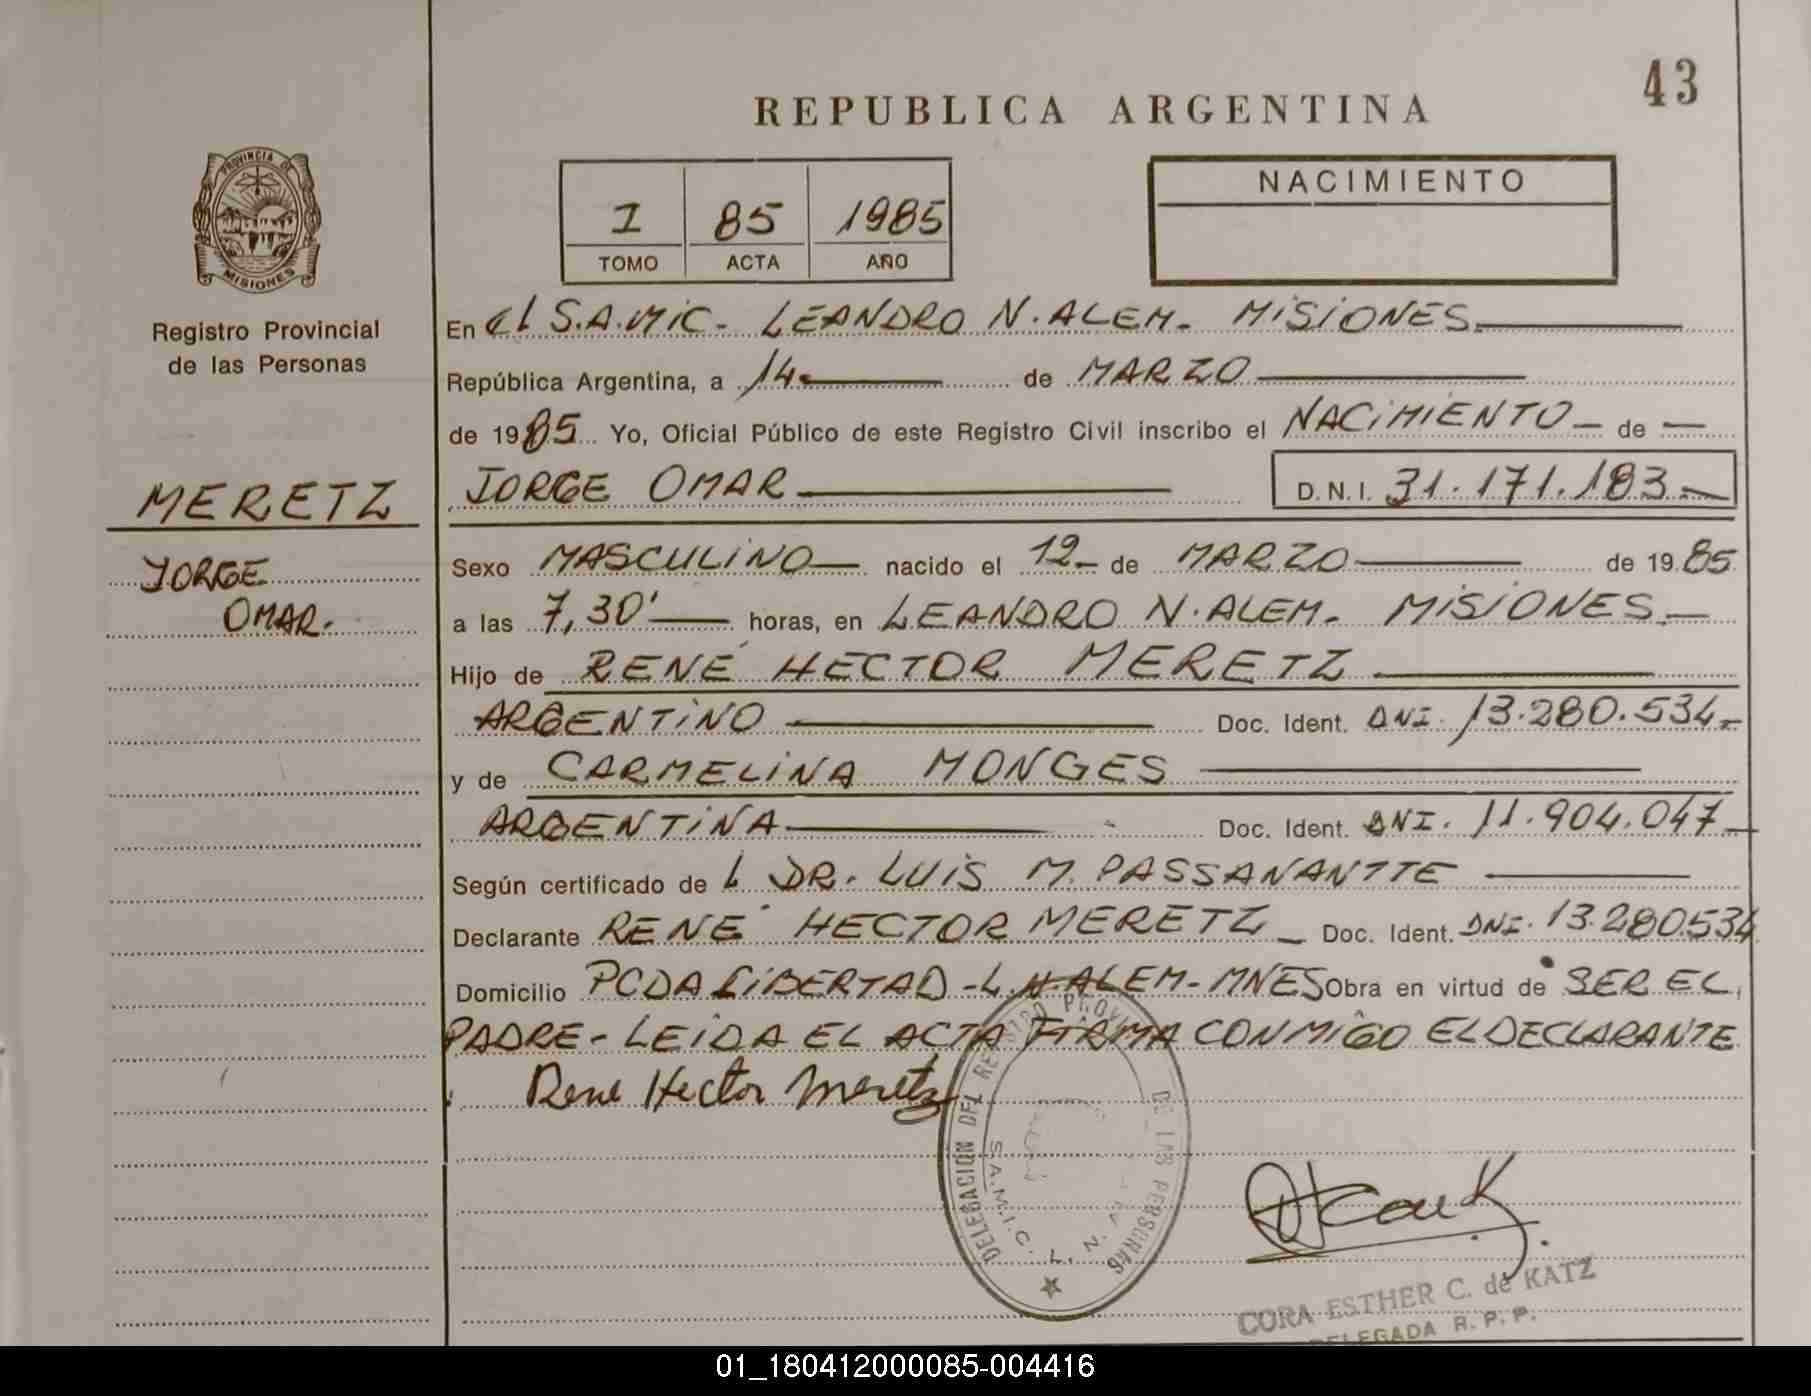 43
REPUBLICA ARGENTINA
PROVINCIA DE
MISIONES
Registro Provincial
de las Personas
I 85 1985
TOMO ACTA AÑO
NACIMIENTO
En el S.A.MiC- LEANDRO N. ALEM- MiSiONES
República Argentina, a 14 de MARZO
de 1985 Yo, Oficial Público de este Registro Civil inscribo el NACiMiENTO - de -
MERETZ
JORGE
OMAR.
JORGE OMAR D.N.I. 31.171.183-
Sexo MASCULiNO nacido el 12- de MARZO de 1985
a las 7,30' horas, en LEANDRO N. ALEM- MiSiONES-
Hijo de RENÉ HECTOR MERETZ
ARGENTiNO Doc. Ident. DNI. 13.280.534-
y de CARMELiNA MONGES
ARGENTiNA Doc. Ident. DNI. 11.904.047-
Según certificado de l DR. LUiS M. PASSANANTTE
Declarante RENÉ HECTOR MERETZ - Doc. Ident. DNI. 13.280.534
Domicilio PCDA LiBERTAD - L.N. ALEM- MNES Obra en virtud de SER EL
PADRE- LEiDA EL ACTA FiRMA CONMiGO EL DECLARANTE
Rene Hector Meretz
DELEGACION DEL REGISTRO PROV. DE LAS PERSONAS
S.A.M.I.C. L. N.
CORA ESTHER C. de KATZ
DELEGADA R. P. P.
01_180412000085-004416